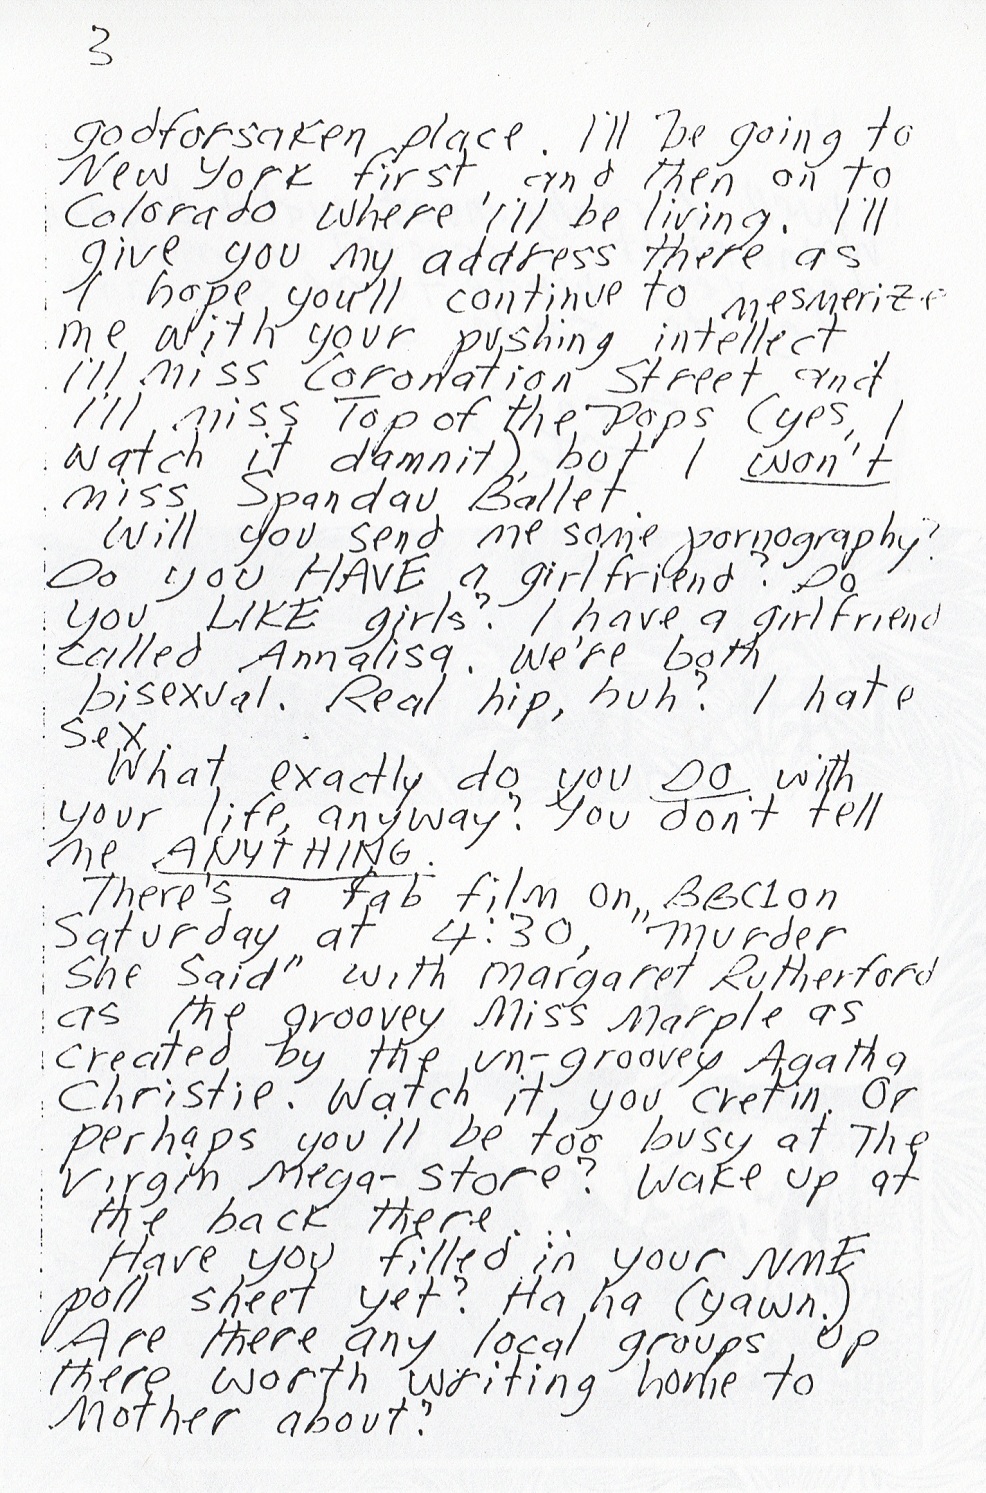 3
godforsaken place. I'll be going to
New York first, and then on to
Colorado where I'll be living. I'll
give you my address there as
I hope you'll continue to mesmerize
me with your pushing intellect
I'll miss Coronation Street and
I'll miss Top of the Pops (yes, I
watch it damnit), but I won't
miss Spandau Ballet.
Will you send me some pornography?
Do you HAVE a girlfriend? Do
you LIKE girls? I have a girlfriend
called Annalisa. We're both
bisexual. Real hip, huh? I hate
sex.
What exactly do you DO with
your life, anyway? You don't tell
me ANYTHING.
There's a fab film on BBC1 on
Saturday at 4:30, "Murder
She Said" with Margaret Rutherford
as the groovey Miss Marple as
created by the un-groovey Agatha
Christie. Watch it, you cretin. Or
perhaps you'll be too busy at The
Virgin Mega-Store? Wake up at
the back there...
Have you filled in your NME
poll sheet yet? Ha ha (yawn.)
Are there any local groups up
there worth writing home to
Mother about?